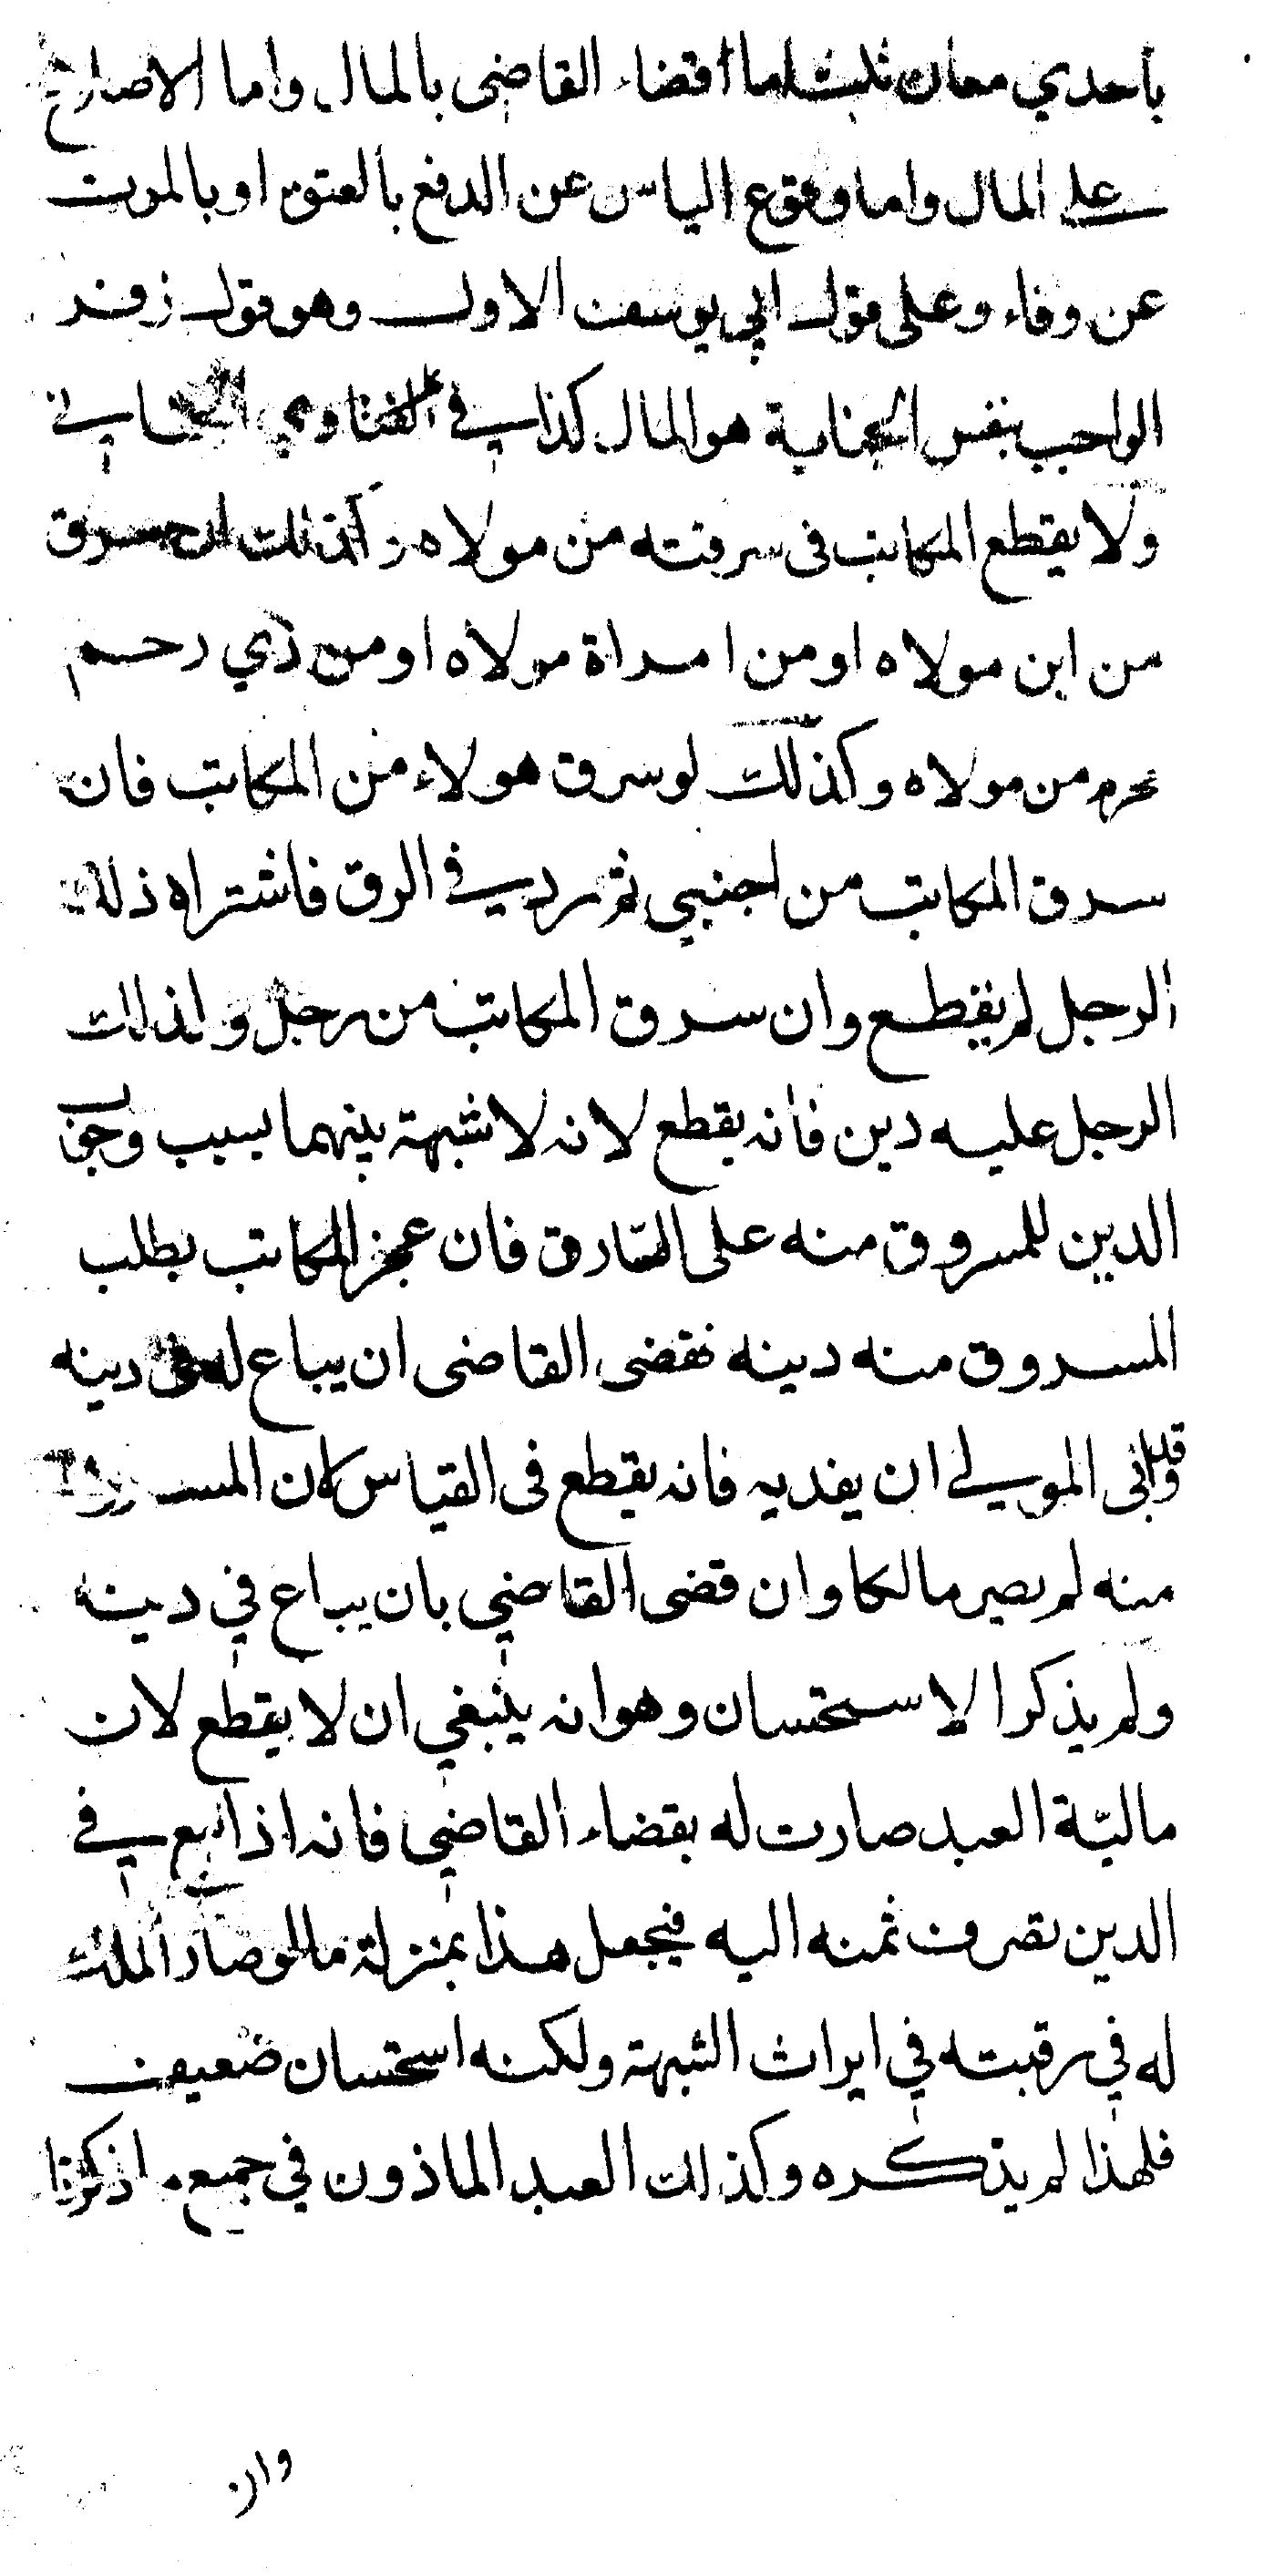 باحدي معان ثلث اما قضاء القاضي بالمال واما الاصلاح
علي المال واما وقوع الياس عن الدفع بالعتق او بالموت
عن وفاء وعلى قول ابي يوسف الاول وهو قول زفر
الواجب بنفس الجناية هو المال كذا في الفتاوي
ولا يقطع المكاتب في سرقته من مولاه وكذلك ان سرق
من ابن مولاه او من امراة مولاه او من ذي رحم
محرم من مولاه وكذلك لو سرق هولاء من المكاتب فان
سرق المكاتب من اجنبي ثم رد في الرق فاشتراه ذلك
الرجل لم يقطع وان سرق المكاتب من رجل ولذلك
الرجل عليه دين فانه يقطع لانه لا شبهة بينهما بسبب وجوب
الدين للمسروق منه على السارق فان عجز المكاتب بطلب
المسروق منه دينه فقضى القاضى ان يباع له في دينه
وقد ابى المولي ان يفديه فانه يقطع فى القياس لان المسروق
منه لم يصير مالكا وان قضى القاضي بان يباع في دينه
ولم يذكر الاستحسان وهو انه ينبغي ان لا يقطع لان
ماليّة العبد صارت له بقضاء القاضي فانه اذا بيع في
الدين يصرف ثمنه اليه فيجعل هذا بمنزلة ما لو صار الملك
له في رقبته في ايراث الشبهة ولكنه استحسان ضعيف
فلهذا لم يذكره وكذلك العبد الماذون في جميع ما ذكرنا
وان